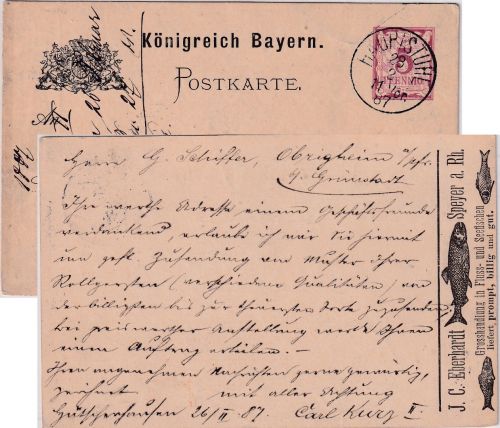 Königreich Bayern.
POSTKARTE.
5
PFENNIG
HAUPTSTUHL
87
1887
Herrn G. Schiffer, Obrigheim a/pfr.
b. Grünstadt
Ihre werthe Adresse einem Geschäftsfreunde
verdankend erlaube ich mir Sie hiermit
um gefl. Zusendung von Muster ihrer
Rollgersten (verschiedene Qualitäten) von
der billigsten bis zur theuersten Sorte zuzusenden,
bei preiswerther Anstellung werde Ihnen
einen Auftrag erteilen. —
Ihren angenehmen Nachrichten gerne gewärtig,
zeichnet mit aller Achtung
Hütschenhausen 26/II 87. Carl Kurz II.
J. C. Eberhardt Speyer a. Rh.
Grosshandlung in Fluss- und Seefischen
liefert prompt, billig und gut.